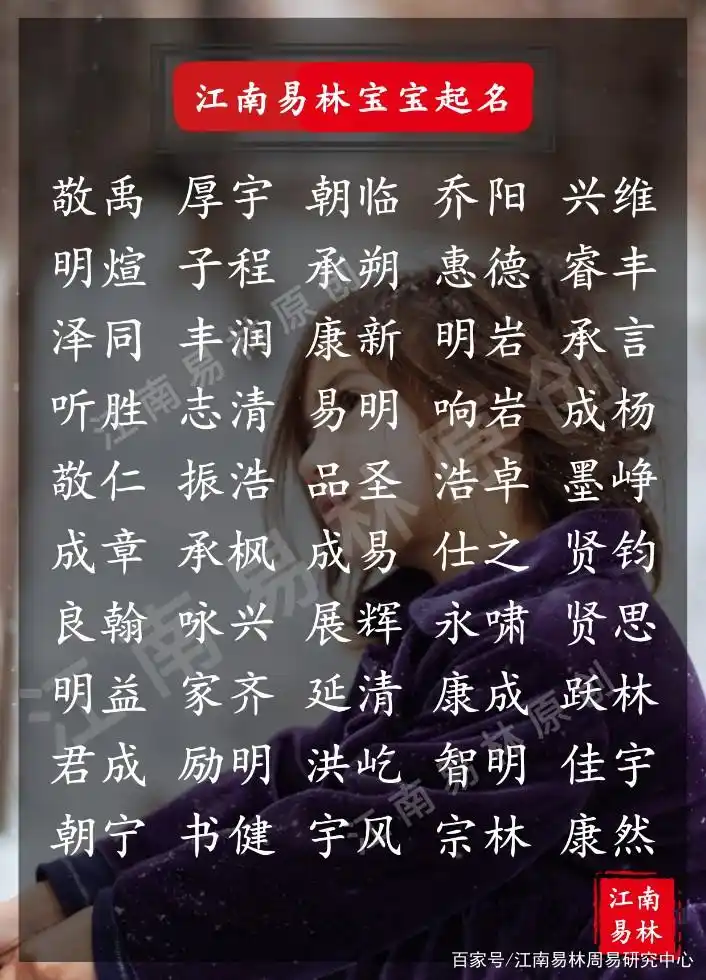 江南易林宝宝起名
敬禹 厚宇 朝临 乔阳 兴维
明煊 子程 承朔 惠德 睿丰
泽同 丰润 康新 明岩 承言
听胜 志清 易明 响岩 成杨
敬仁 振浩 品圣 浩卓 墨峥
成章 承枫 成易 仕之 贤钧
良翰 咏兴 展辉 永啸 贤思
明益 家齐 延清 康成 跃林
君成 励明 洪屹 智明 佳宇
朝宁 书健 宇风 宗林 康然
江南易林原创
江南易林原创
江南易林原创
江南
易林
百家号/江南易林周易研究中心